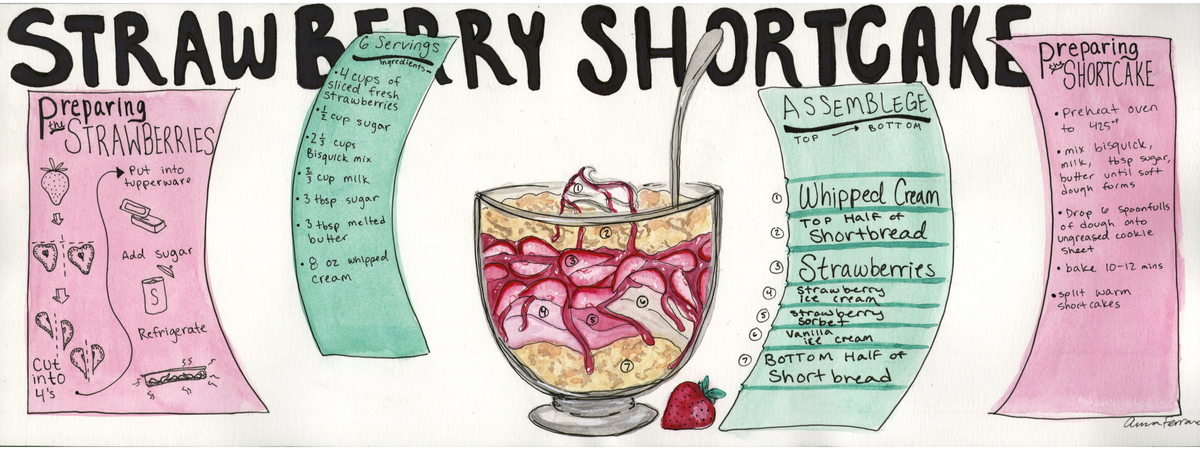 STRAWBERRY SHORTCAKE
Preparing
the STRAWBERRIES
Put into
tupperware
Add sugar
S
Refrigerate
Cut
into
4's
6 Servings
Ingredients-
•4 cups of
sliced fresh
strawberries
•1/2 cup sugar
•2 1/3 cups
Bisquick mix
•2/3 cup milk
•3 tbsp sugar
•3 tbsp melted
butter
•8 oz whipped
cream
1
2
3
4
5
6
7
ASSEMBLEGE
TOP → BOTTOM
1 Whipped Cream
2 TOP Half of
Shortbread
3 Strawberries
4 Strawberry
ice cream
5 strawberry
sorbet
6 Vanilla
ice cream
7 BOTTOM Half of
Short bread
Preparing
the SHORTCAKE
•Preheat oven
to 425°F
•mix bisquick,
milk, tbsp sugar,
butter until soft
dough forms
•Drop 6 spoonfulls
of dough onto
ungreased cookie
sheet
•bake 10-12 mins
•split warm
shortcakes